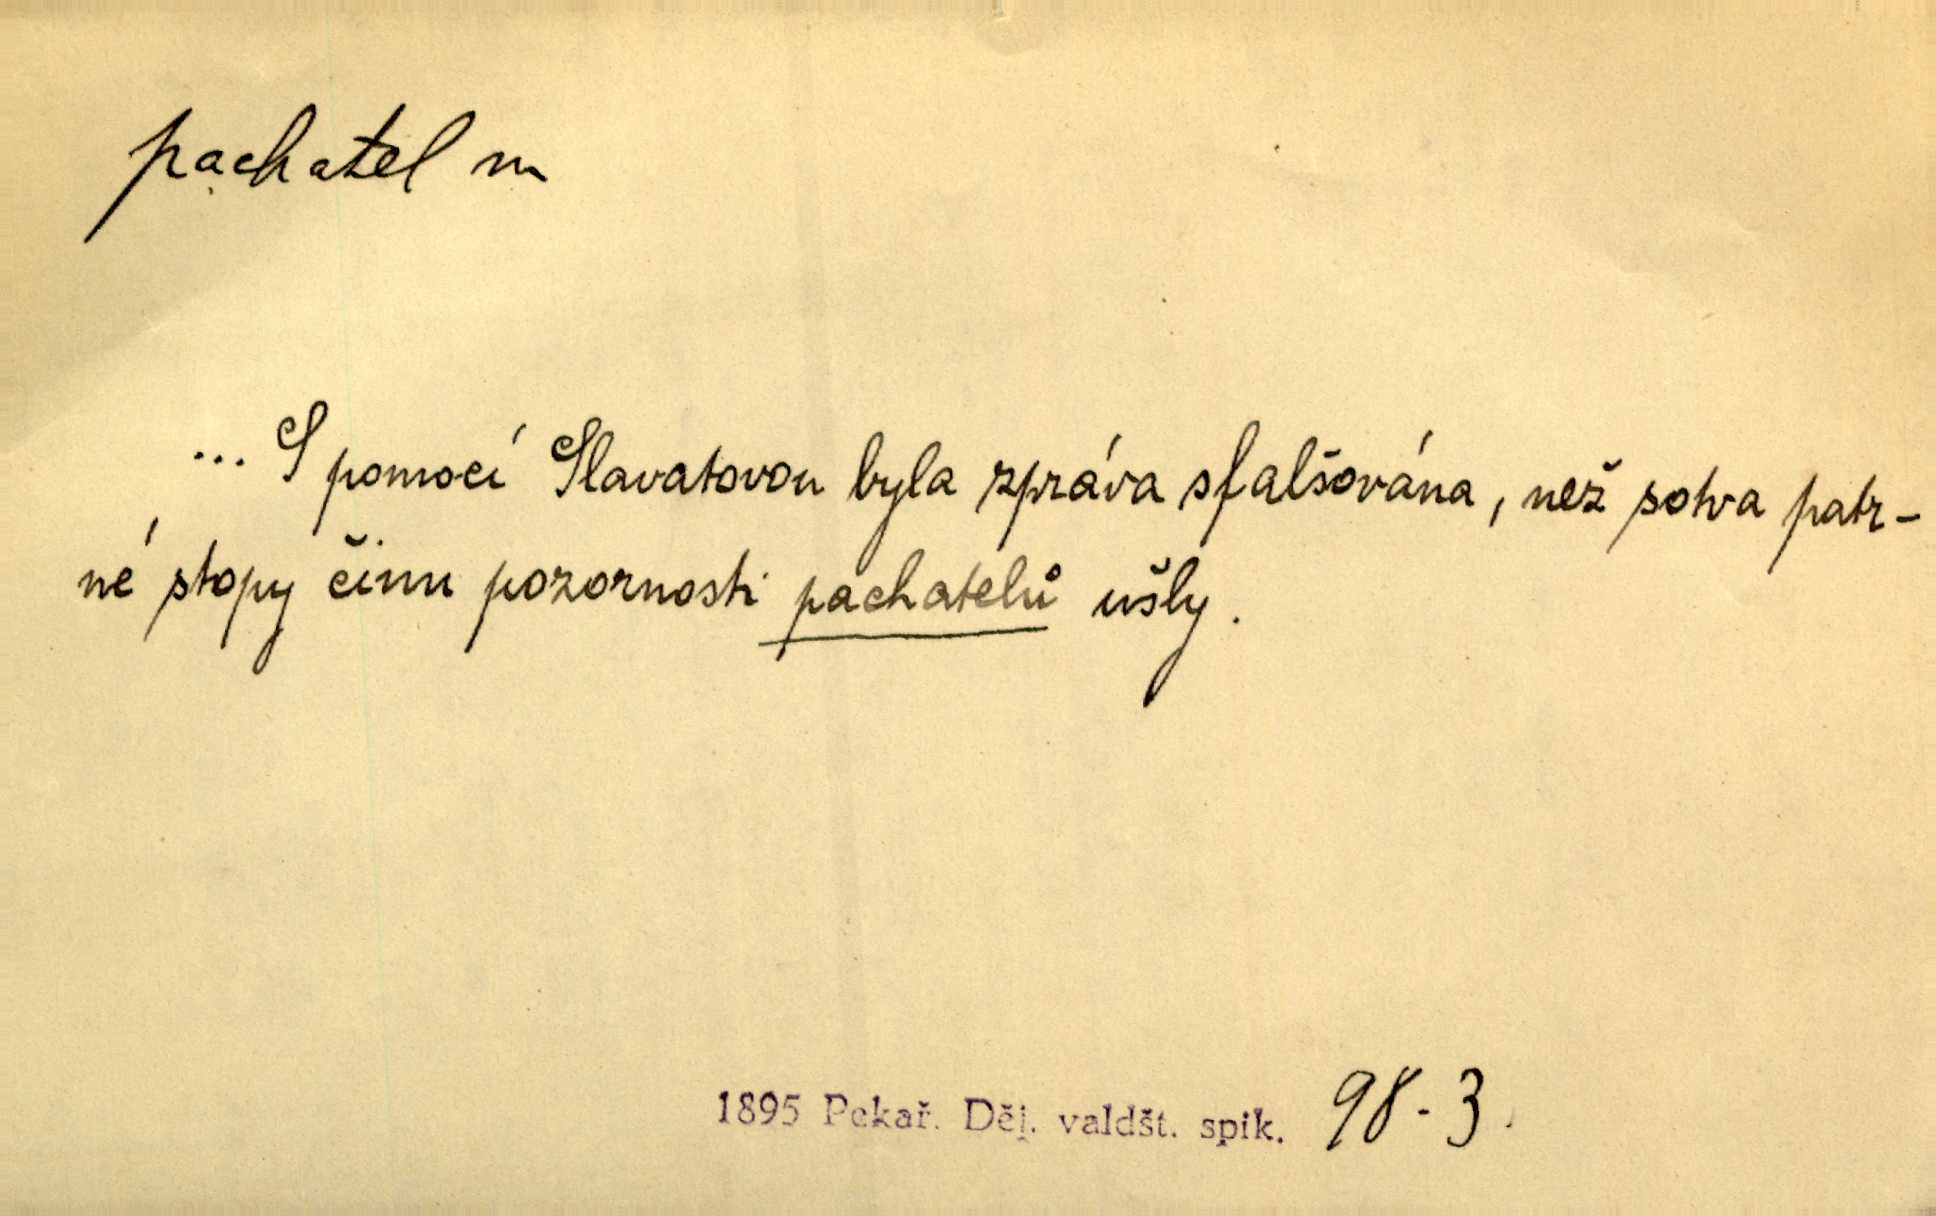 pachatel m
... S pomocí Slavatovou byla zpráva sfalšována, než sotva patr-
né stopy činu pozornosti pachatelů ušly.
1895 Pekař. Děj. valdšt. spik. 98-3